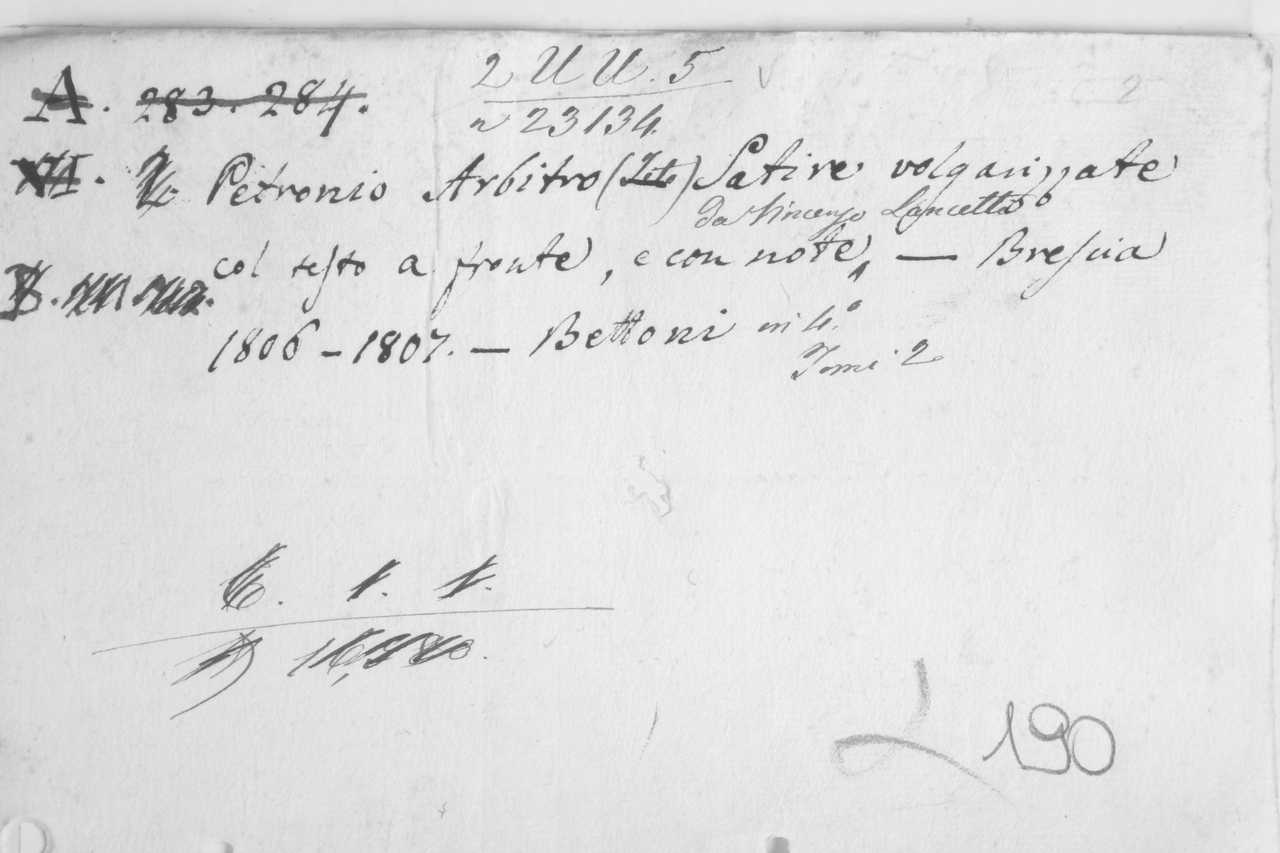 2 U U. 5
A. 283. 284.
n 23134.
XII. Petronio Arbitro (Tito) Satire volgarizzate
da Vincenzo Lancetti
col testo a fronte, e con note, — Brescia
B.
1806 - 1807. — Bettoni in 4.º
Tomi 2
6. 1. 1.
L 190